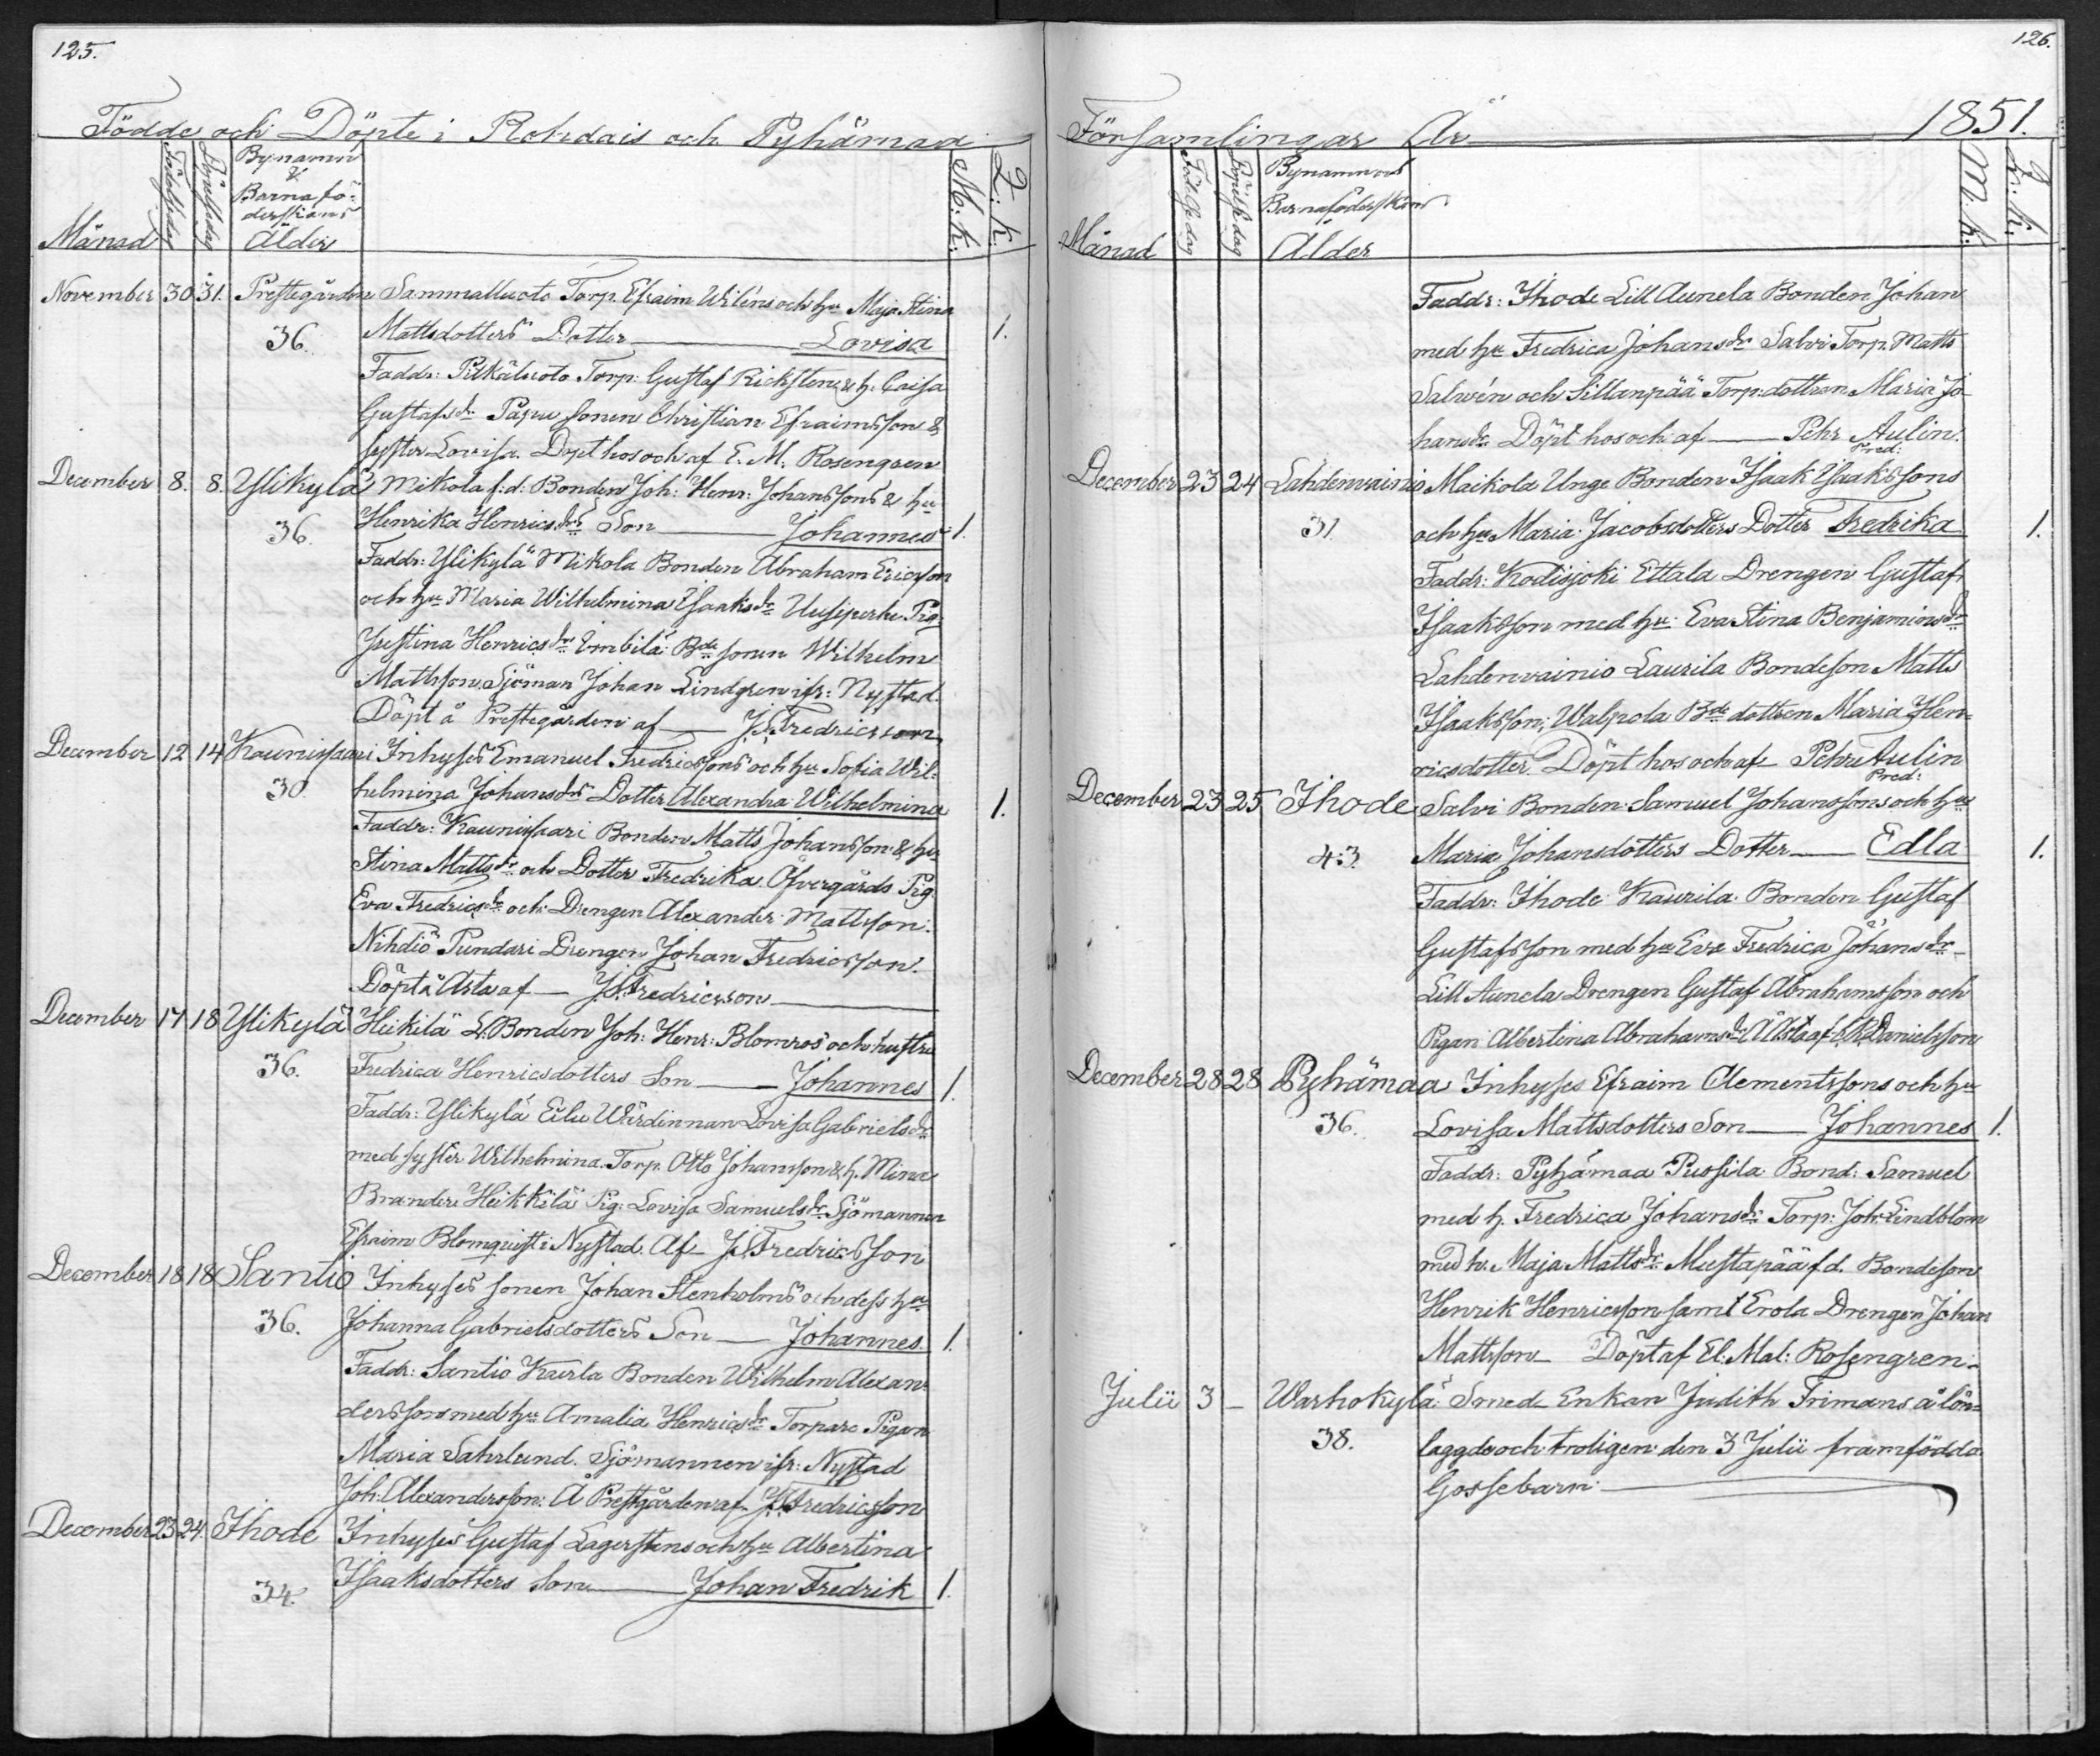 125.
Födde och Döpte i Rohdais och Pyhämaa
Månad
Födelsedag
Döpelsedag
Bynamn
&
Barnafö-
derskans
Ålder
M: k:
Q: k:
November 30 31. Prestegården Sammalluoto Torp. Efraim Wiléns och hu Maja Stina
36. Mattsdotters Dotter Lovisa 1.
Faddr: Pitkäluoto Torp: Gustaf Ricksten & h: Caisa
Gustafsdr Papu sonen Christian Efraimsson &
syster Lovisa. Döpt hos och af E. M. Rosengren
December 8. 8. Ylikylä Mikola f:d: Bonden Joh: Henr: Johanssons & hu
36. Henrika Henricsdrs Son Johannes 1.
Faddr: Ylikylä Mikola Bonden Abraham Ericsson
och hu Maria Wilhelmina Isaaksdr Uusiperhe Pig:
Justina Henricsdr Vmbilä Bde sonen Wilhelm
Mattsson, Sjöman Johan Lindgren ifr: Nystad.
Döpt å Prestegården af J. Fredricsson
December 12 14 Kaunissaari Inhyses Emanuel Fredricssons och hu Sofia Wil-
30. helmina Johansdrs Dotter Alexandra Wilhelmina 1.
Faddr: Kaunissaari Bonden Matts Johansson & hu
Stina Mattsdr och Dotter Fredrika Öfvergårds Pig.
Eva Fredricsdr och Drengen Alexander Mattsson.
Nihdiö Pundari Drengen Johan Fredricsson.
Döpt å Arla af J. Fredricsson
December 17 18 Ylikylä Heikilä L. Bonden Joh: Henr: Blomros och hustru
36. Fredrica Henricsdotters Son Johannes 1.
Faddr: Ylikylä Eilu Wärdinnan Lovisa Gabrielsdr
med syster Wilhelmina. Torp. Otto Johansson & h. Mina
Brander. Heikkilä Pig: Lovisa Samuelsdr Sjömannen
Efraim Blomquist i Nystad. Af J. Fredricsson
December 18 18 Santio Inhyses sonen Johan Stenholms och dess hu
36. Johanna Gabrielsdotters Son Johannes. 1.
Faddr: Santio Kaurla Bonden Wilhelm Alexan-
dersson med hu Amalia Henricsdr Torpare Pigan
Maria Sahrlund. Sjömannen ifr: Nystad
Joh: Alexandersson. Å Prestgården af J. Fredricsson
December 23 24. Ihode Inhyses Gustaf Lagerstens och hu Albertina
34. Isaaksdotters Son Johan Fredrik 1.
126.
Församlingar År 1851.
Månad
Födelsedag
Döpelsedag
Bynamn och
Barnaföderskans
Ålder
M. k.
Q: k:
Faddr: Ihode Lill Aunela Bonden Johan
med hu Fredrica Johansdr Salvi Torp. Matts
Salvén och Sillanpää Torp:dottren Maria Jo-
hansdr Döpt hos och af Pehr Aulin.
Pred:
December 23 24 Lahdenvainio Maikola Unge Bonden Isaak Isaakssons
31. och hu Maria Jacobsdotters Dotter Fredrika 1.
Faddr: Kodisjoki Ettala Drengen Gustaf
Isaaksson med hu Eva Stina Benjaminsdr
Lahdenvainio Laurila Bondeson Matts
Isaaksson, Walpola Bde dottren Maria Hen-
ricsdotter. Döpt hos och af Pehr Aulin
Pred:
December 23 25 Ihode Salvi Bonden Samuel Johanssons och hu
43. Maria Johansdotters Dotter Edla 1.
Faddr: Ihode Kaurila Bonden Gustaf
Gustafsson med hu Eva Fredrica Johansdr
Lill Aunela Drengen Gustaf Abrahamsson och
Pigan Albertina Abrahamsdr Å Arla af Danielsson
December 28 28 Pyhämaa Inhyses Efraim Clementssons och hu
36. Lovisa Mattsdotters Son Johannes 1.
Faddr: Pyhämaa Puosila Bond: Samuel
med h. Fredrica Johansdr Torp: Joh: Lindblom
med h. Maja Mattsdr Mustapää f.d. Bondeson
Henrik Henricsson samt Erola Drengen Johan
Mattsson Döpt af El: Mal: Rosengren.
Julii 3 – Warhokylä Smed Enkan Judith Frimans å lön-
38. laggde och troligen den 3 Julii framfödda
Gossebarn.